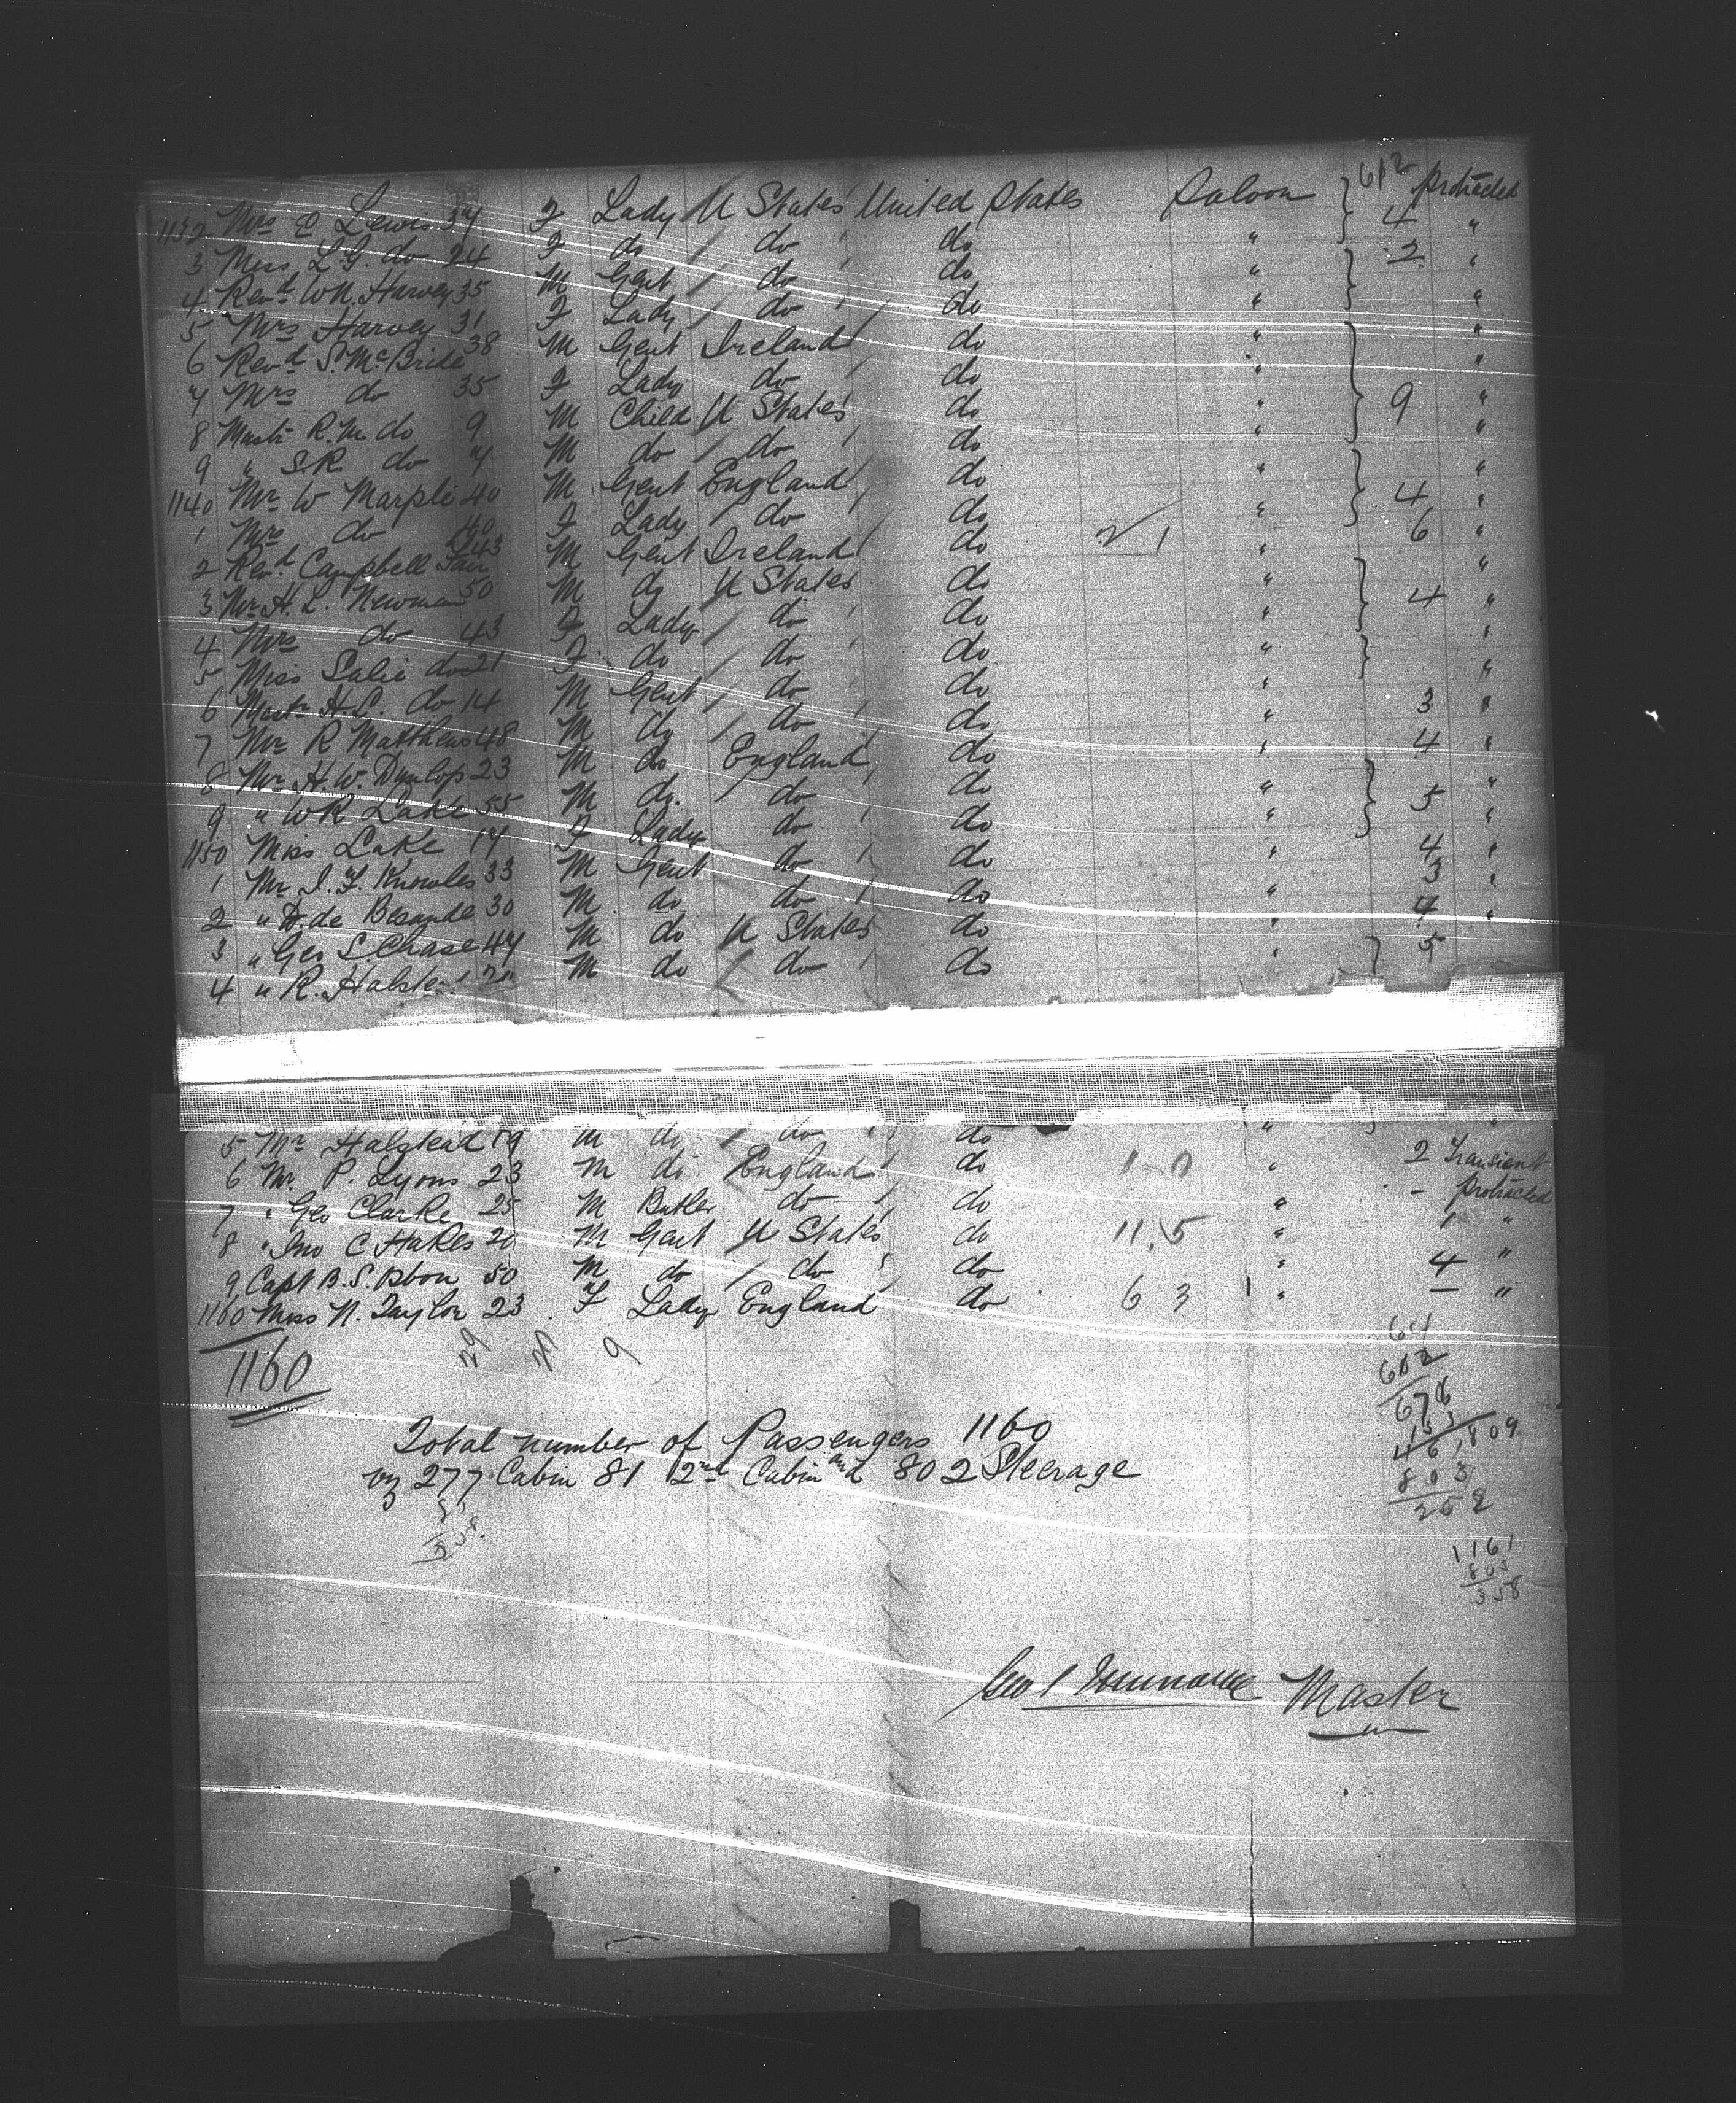 1132 Mrs E Lewis 57 F Lady U States United States Saloon 612 protracted
3 Miss L.G. do 24 F do do do " 4 "
4 Revd W.N. Harvey 35 M Gent do do " 2 "
5 Mrs Harvey 31 F Lady do do " "
6 Revd S. McBride 38 M Gent Ireland do " "
7 Mrs do 35 F Lady do do " "
8 Mastr R.M. do 9 M Child U States do " 9 "
9 " S.R. do 7 M do do do " "
1140 Mr W Marple 40 M Gent England do " "
1 Mrs do 40 F Lady do do " 4 "
2 Revd Campbell Fair 43 M Gent Ireland do " 6 "
3 Mr H.L. Newman 50 M do U States do " "
4 Mrs do 43 F Lady do do " 4 "
5 Miss Salie do 21 F do do do " "
6 Mastr H.L. do 14 M Gent do do " "
7 Mr R Matthews 48 M do do do " 3 "
8 Mr H W Dunlop 23 M do England do " 4 "
9 " W R Lake 55 M do do do " 5 "
1150 Miss Lake 17 F Lady do do " "
1 Mr J. F. Knowles 33 M Gent do do " 4 "
2 " D. de 30 M do do do " 3 "
3 " Geo S. Chase 47 M do U States do " 4 "
4 " R. Halstead M do do do " 5
5 Mr Halstead 19 M do do do "
6 Mr. P. Lyons 23 M do England do 1-0 " 2 Transient
7 " Geo Clarke 25 M Butler do do " - protracted
8 " Jno C Hakes M Gent U States do 11.5 " "
9 Capt B.S. 50 M do do do " 4 "
1160 Miss N. Taylor 23 F Lady England do 6 3 " - "
1160
Total number of Passengers 1160
viz 277 Cabin 81 2nd Cabin and 802 Steerage
1161
358
Master